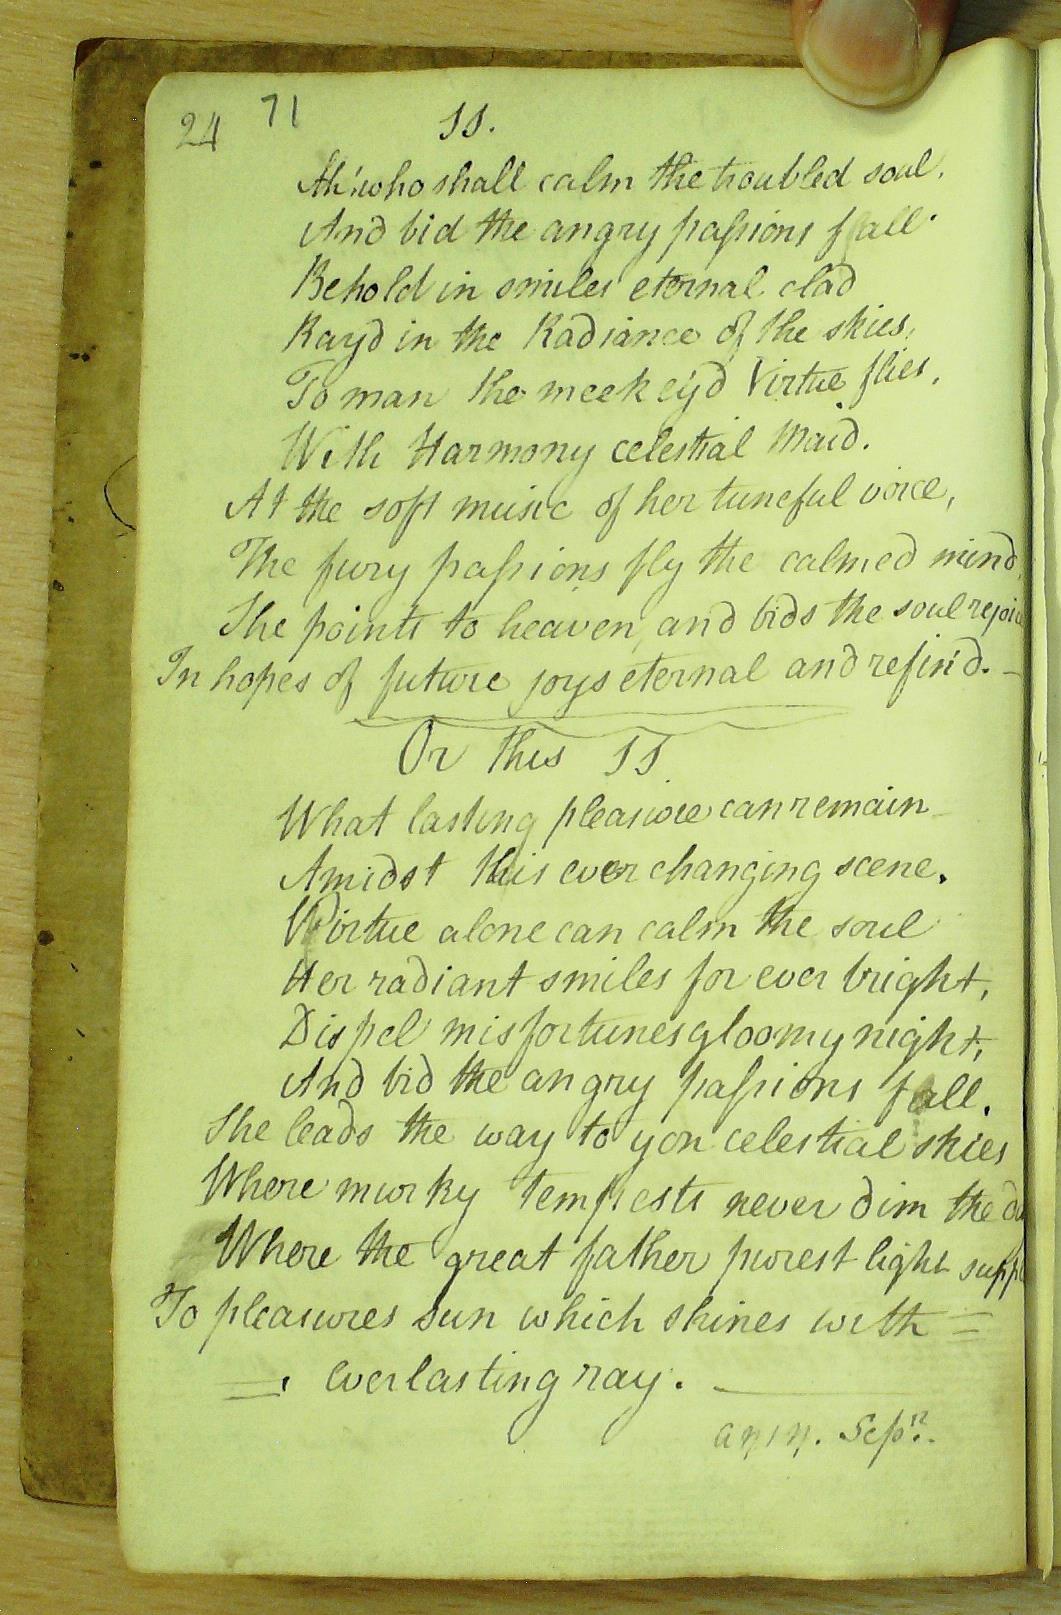 24 71
11.
Ah! who shall calm the troubled soul,
And bid the angry paſsions fall.
Behold in smiles eternal clad
Rayd in the Radiance of the skies,
To man the meek ey'd Virtue flies,
With Harmony celestial Maid.
At the soft music of her tuneful voice,
The fury paſsions fly the calmed mind,
She points to heaven, and bids the soul rejoice
In hopes of future joys eternal and refin'd. —
Or this 11
What lasting pleasure can remain
Amidst this ever changing scene.
Virtue alone can calm the soul
Her radiant smiles for ever bright,
Dispel misfortunes gloomy night,
And bid the angry paſsions fall.
She leads the way to yon celestial skies
Where murky tempests never dim the
Where the great father purest light
To pleasures sun which shines with =
=, everlasting ray. —
Sepr.